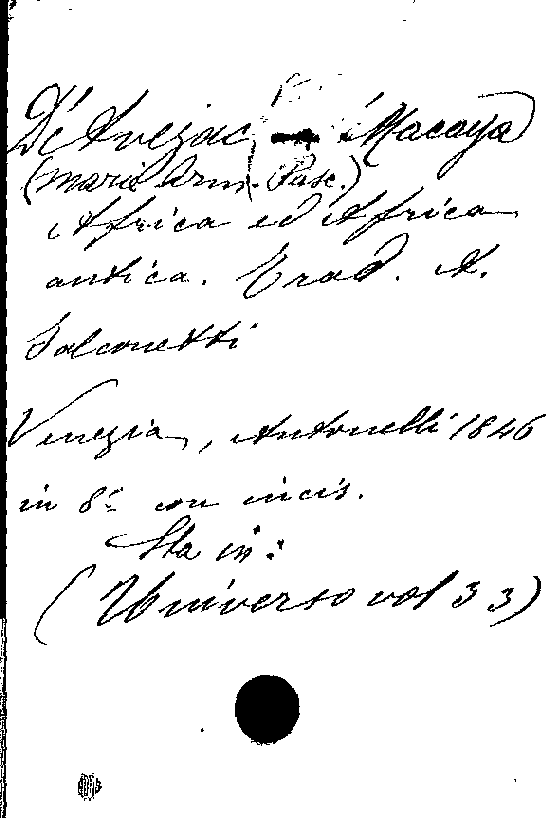 D'Avezac Macaya
(Marie Arm. Pasc.)
Africa ed Africa
antica. Trad. A.
Falconetti
Venezia, Antonelli 1846
in 8° con incis.
Sta in:
(Universo vol 33)